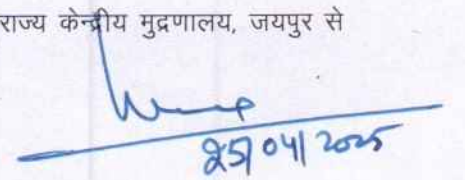 राज्य केन्द्रीय मुद्रणालय, जयपुर से
25/04/2025